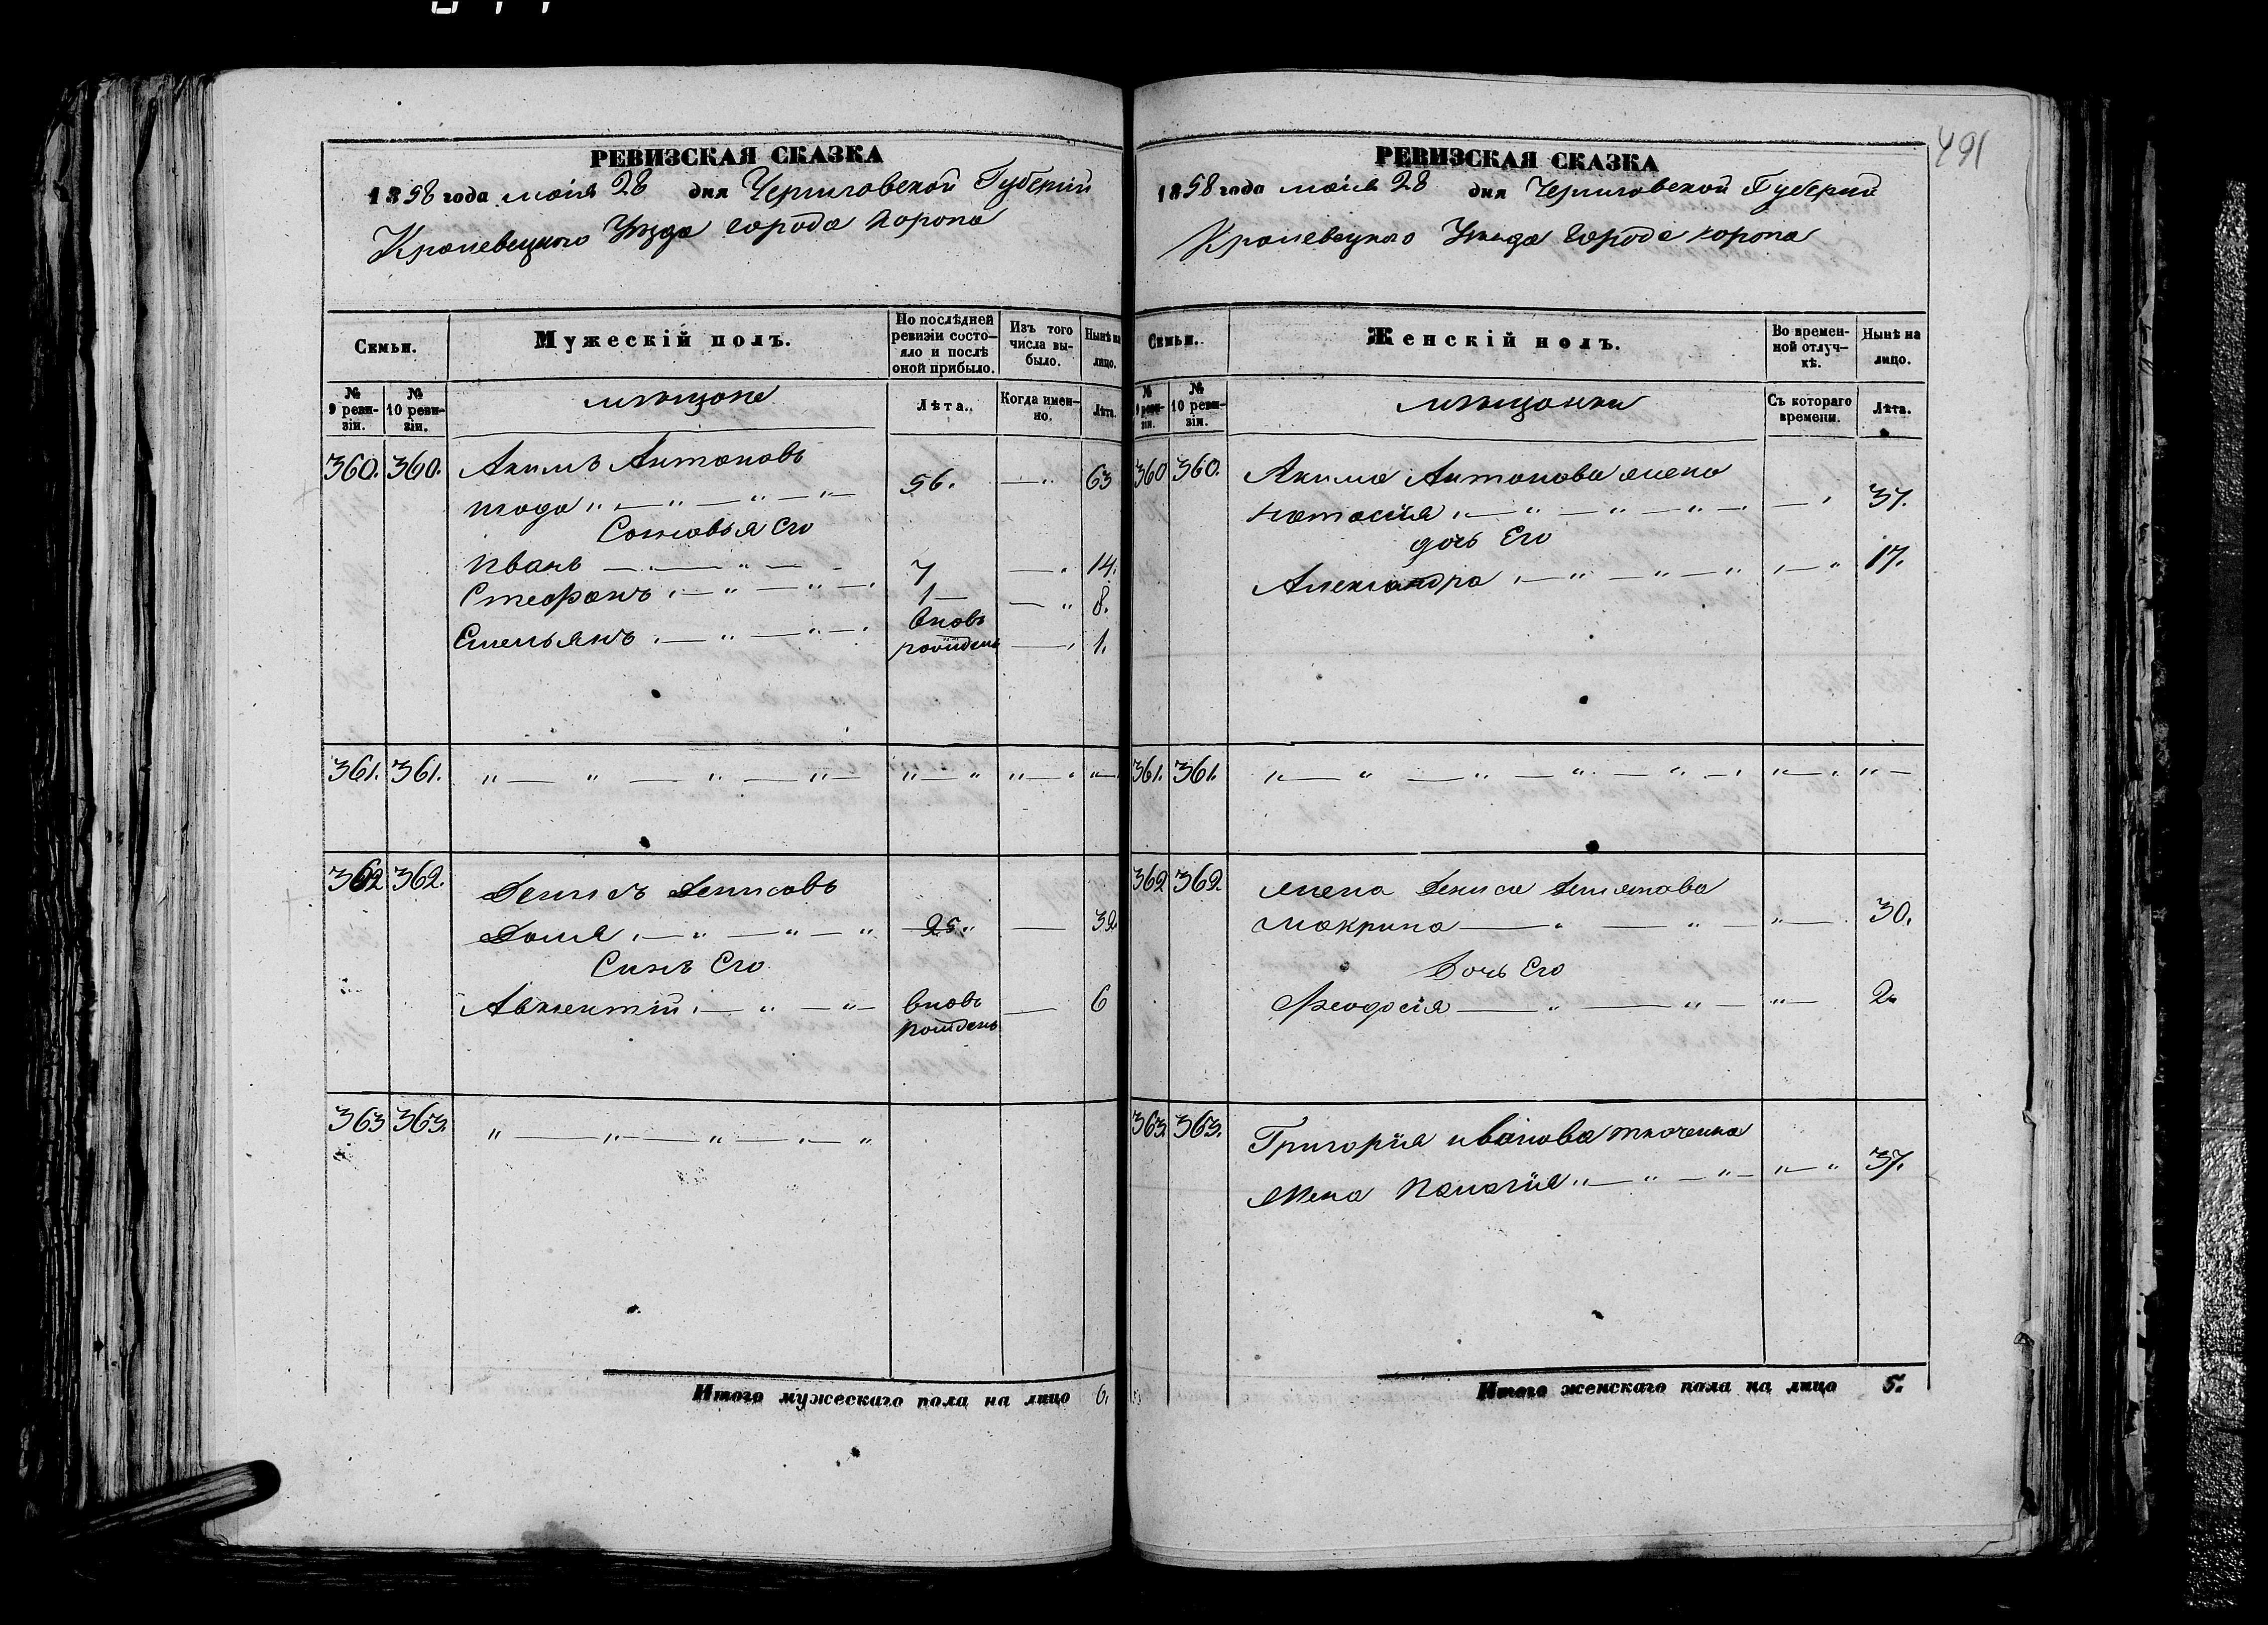 РЕВИЗСКАЯ СКАЗКА
1858 года маія 28 дня Черниговской Губерніи
Кролевецкого Уѣзда города Коропа
Семьи.
Мужескій полъ.
По послѣдней ревизіи состояло и послѣ оной прибыло.
Изъ того числа выбыло.
Нынѣ на лицо.
№ 9 ревизіи.
№ 10 ревизіи.
мѣщане
Лѣта.
Когда именно.
Лѣта.
360. 360. Акимъ Антоновъ
56. 63
Сыновья Его
Иванъ 7 14.
Стефанъ 1 8.
Емельянъ вновь рожденъ 1.
361. 361.
362 362. Денисъ Денисовъ
25 32
Сынъ Его
Авксентій вновь рожденъ 6
363 363.
Итого мужескаго пола на лицо 6.
491
РЕВИЗСКАЯ СКАЗКА
1858 года маія 28 дня Черниговской Губерніи
Кролевецкого Уѣзда города Коропа
Семьи.
Женскій полъ.
Во временной отлучкѣ.
Нынѣ на лицо.
№ 9 ревизіи.
№ 10 ревизіи.
мѣщанки
Съ котораго времени.
Лѣта.
360 360. Акима Антонова жена
Натасія 37.
дочь Его
Александра 17.
361. 361.
362 362. жена Дениса
Макрина 30.
Дочь Его
Феодосія 2
363. 363. Григорія Иванова Ткаченка
жена Палагія 37.
Итого женскаго пола на лицо 5.